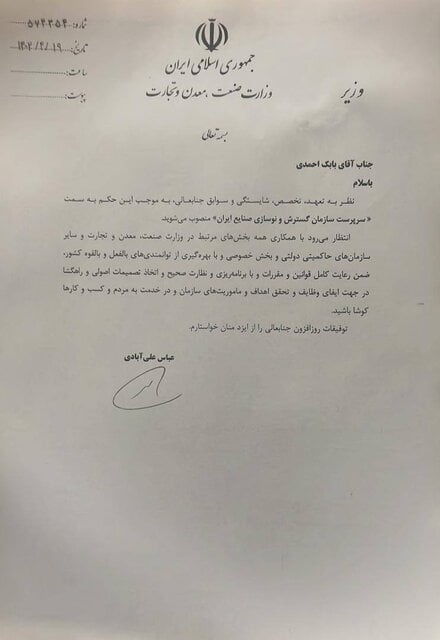 شماره: ۵۷۴۳۵۴
تاریخ: ۱۴۰۲/۴/۱۹
ساعت:
پیوست:
جمهوری اسلامی ایران
وزارت صنعت، معدن و تجارت
وزیر
بسمه تعالی
جناب آقای بابک احمدی
باسلام
نظر به تعهد، تخصص، شایستگی و سوابق جنابعالی، به موجب این حکم به سمت
«سرپرست سازمان گسترش و نوسازی صنایع ایران» منصوب می‌شوید.
انتظار می‌رود با همکاری همه بخش‌های مرتبط در وزارت صنعت، معدن و تجارت و سایر
سازمان‌های حاکمیتی دولتی و بخش خصوصی و با بهره‌گیری از توانمندی‌های بالفعل و بالقوه کشور،
ضمن رعایت کامل قوانین و مقررات و با برنامه‌ریزی و نظارت صحیح و اتخاذ تصمیمات اصولی و راهگشا
در جهت ایفای وظایف و تحقق اهداف و ماموریت‌های سازمان و در خدمت به مردم و کسب و کارها
کوشا باشید.
توفیقات روزافزون جنابعالی را از ایزد منان خواستارم.
عباس علی‌آبادی